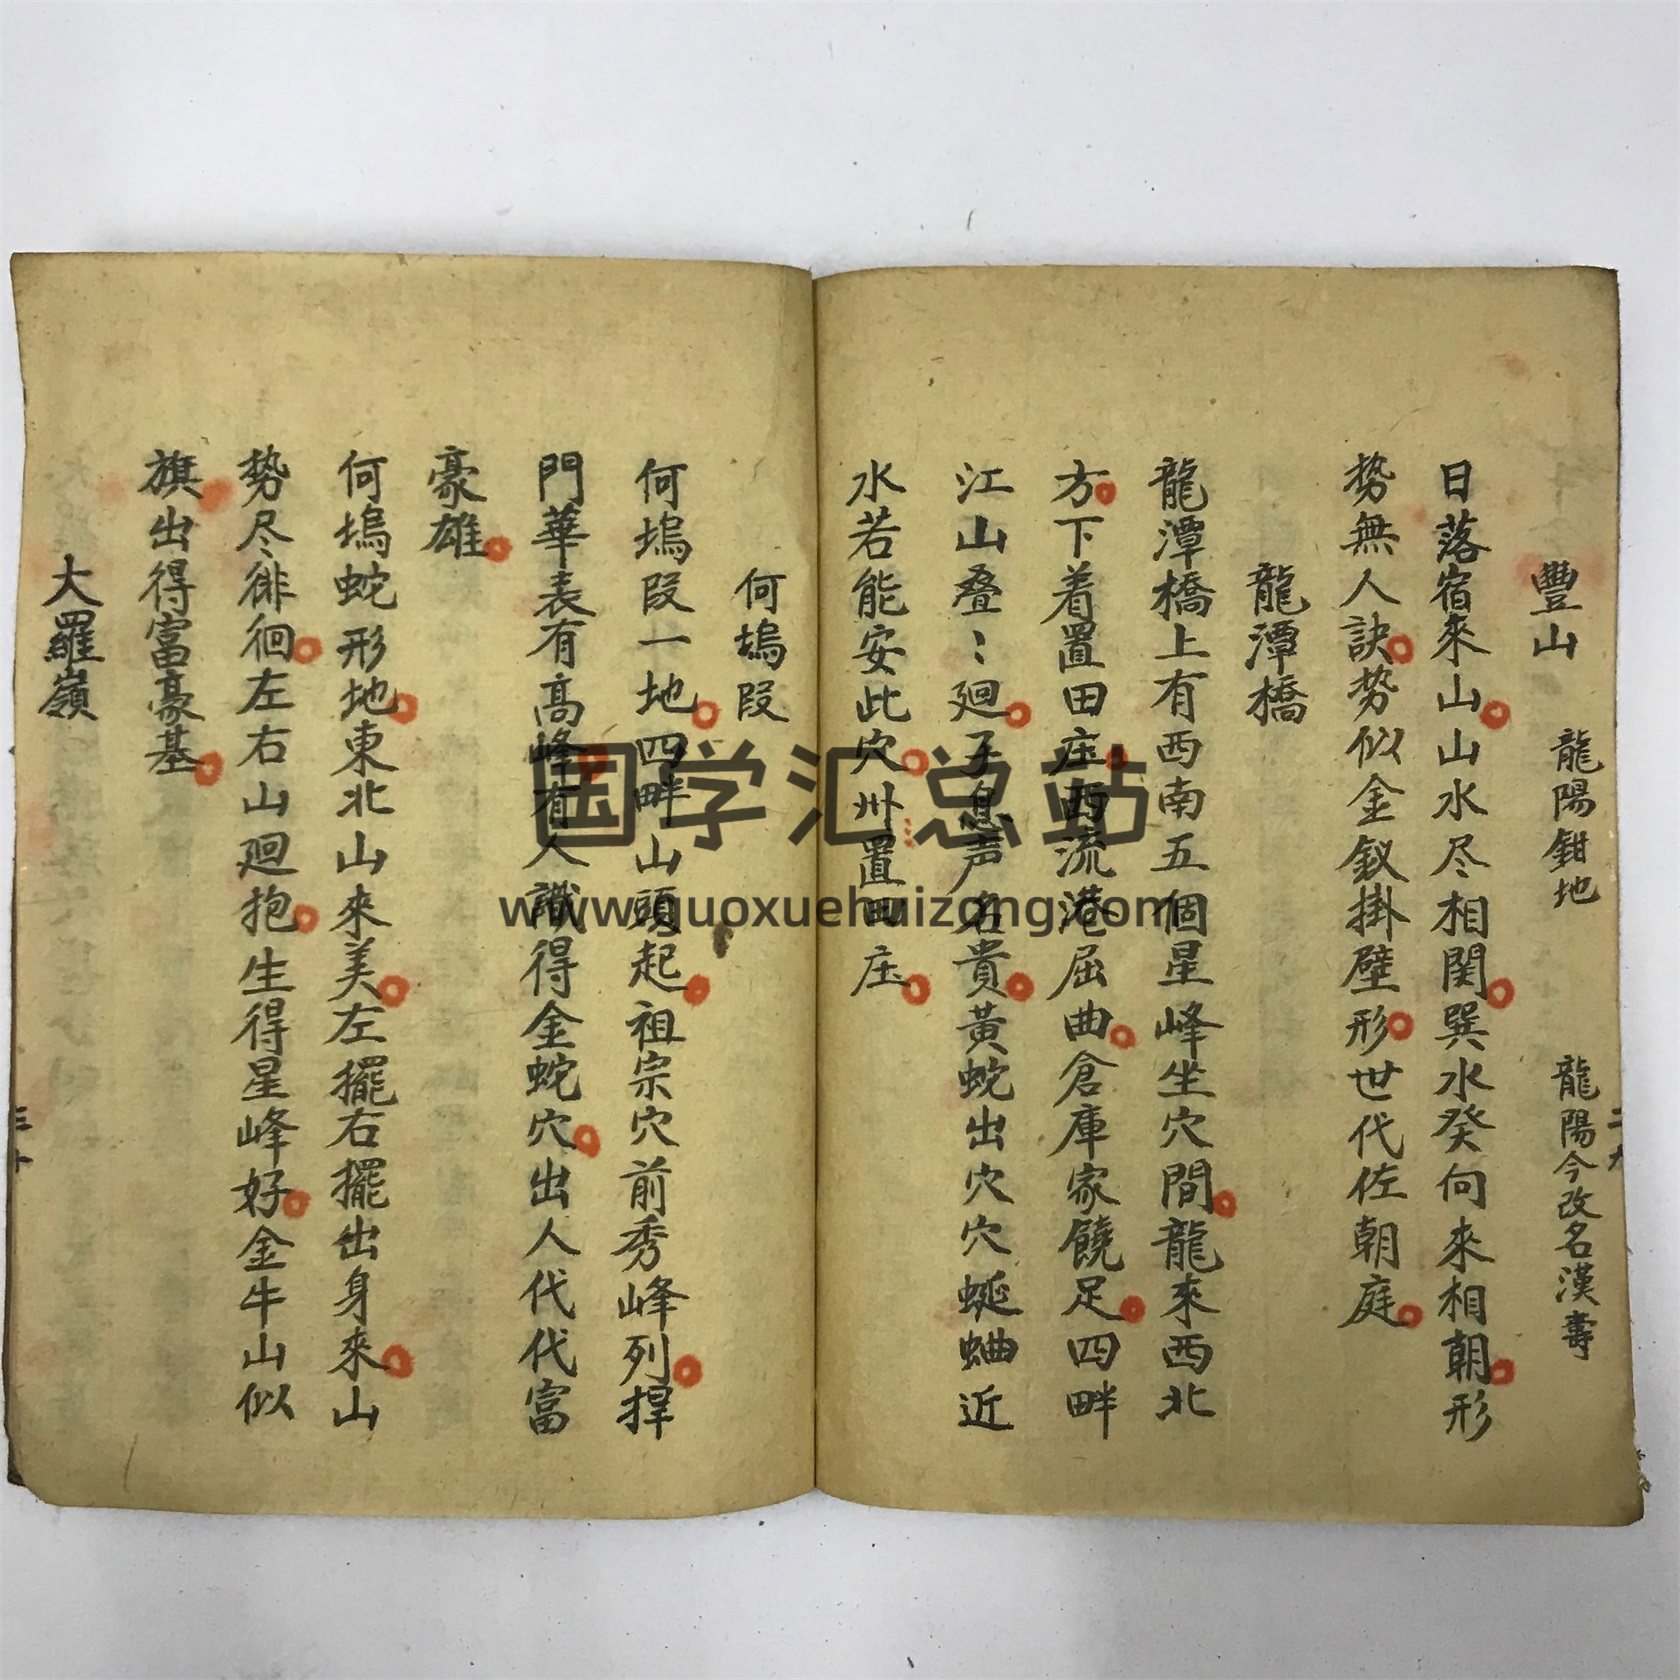 豐山 龍陽鉗地 龍陽今改名漢壽
日落宿來山山水尽相関巽水癸向來相朝形
势無人訣势似金釵掛壁形世代佐朝庭
龍潭橋
龍潭橋上有西南五個星峰坐穴間龍來西北
方下着置田庄西流港屈曲倉庫家饒足四畔
江山叠〻廻子息声名貴黃蛇出穴穴蜒蛐近
水若能安此穴卅置田庄
何塢段
何塢段一地四畔山頭起祖宗穴前秀峰列捍
門華表有高峰有人識得金蛇穴出人代代富
豪雄
何塢蛇形地東北山來美左擺右擺出身來山
势尽徘徊左右山廻抱生得星峰好金牛山似
旗出得富豪基
大羅嶺
国学汇总站
www.guoxuehuizong.com